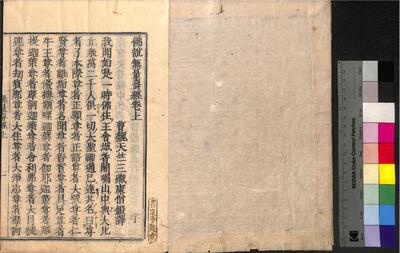 佛說無量壽經卷上
曹魏天竺三藏康僧鎧譯
我聞如是一時佛住王舍城耆闍崛山中與大比
丘衆萬二千人俱一切大聖神通已達其名曰尊
者了本際尊者正願尊者正語尊者大號尊者仁
賢尊者離垢尊者名聞尊者善實尊者具足尊者
牛王尊者優樓頻蠡迦葉尊者伽耶迦葉尊者那
提迦葉尊者摩訶迦葉尊者舍利弗尊者大目犍
連尊者劫賓那尊者大住尊者大淨志尊者摩訶
KODAK Color Control Patches